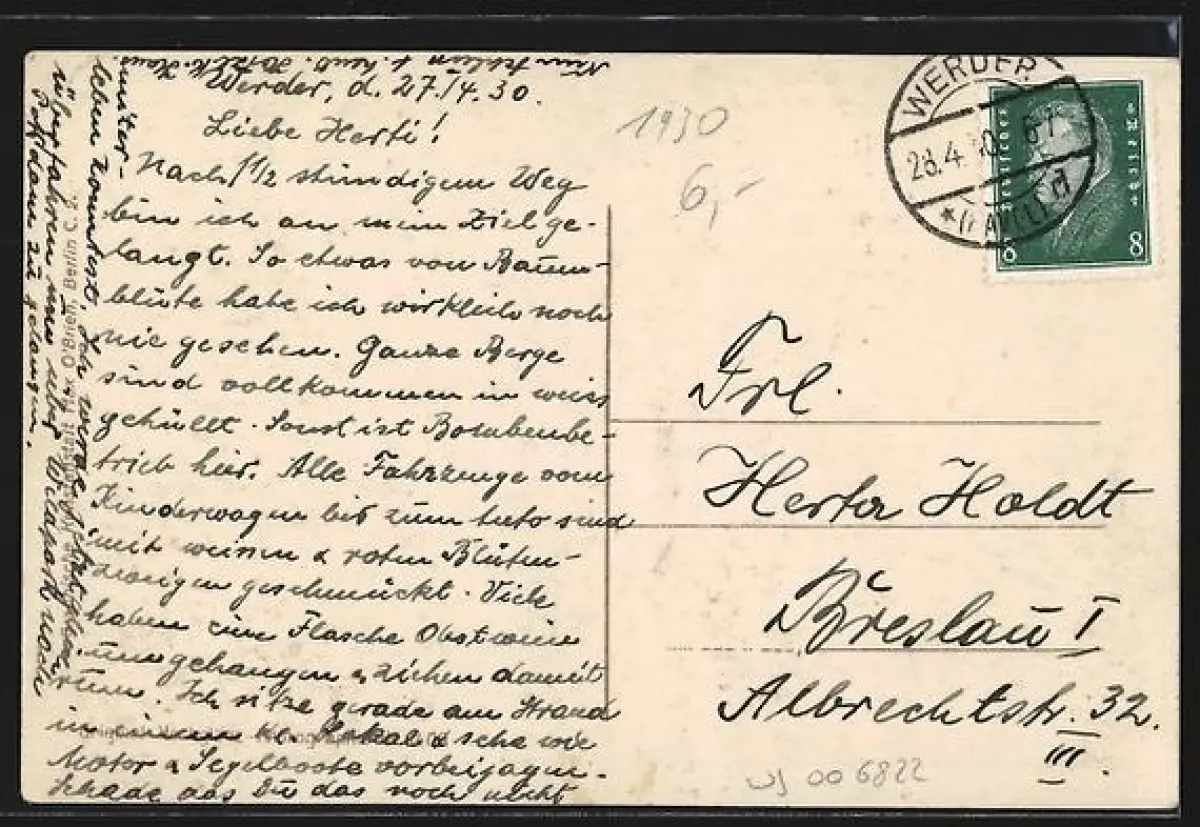 Werder, d. 27./4.30.
Liebe Herti!
Nach 1 1/2 stündigem Weg
bin ich an mein Ziel ge-
langt. So etwas von Baum-
blüte habe ich wirklich noch
nie gesehen. Ganze Berge
sind vollkommen in weiss
gehüllt. Sonst ist Bombenbe-
trieb hier. Alle Fahrzeuge vom
Kinderwagen bis zum Auto sind
mit weissen & roten Blüten-
zweigen geschmückt. Viele
haben eine Flasche Obstwein
umgehangen & ziehen damit
rum. Ich sitze gerade am Strand
in einem kl. Lokal & sehe wie
Motor & Segelboote vorbeijagen.
Schade das Du das noch nicht
miter-
leben konntest. Ich werde
überfahren um
Wildpark nach
Potsdam zu gelangen.
O'Brien, Berlin C. 2.
1930
6,-
WERDER
28.4.30
(HAVEL) d
Deutsches Reich
8 8
Frl.
Herta Holdt
Breslau I
Albrechtstr. 32.
III.
006822